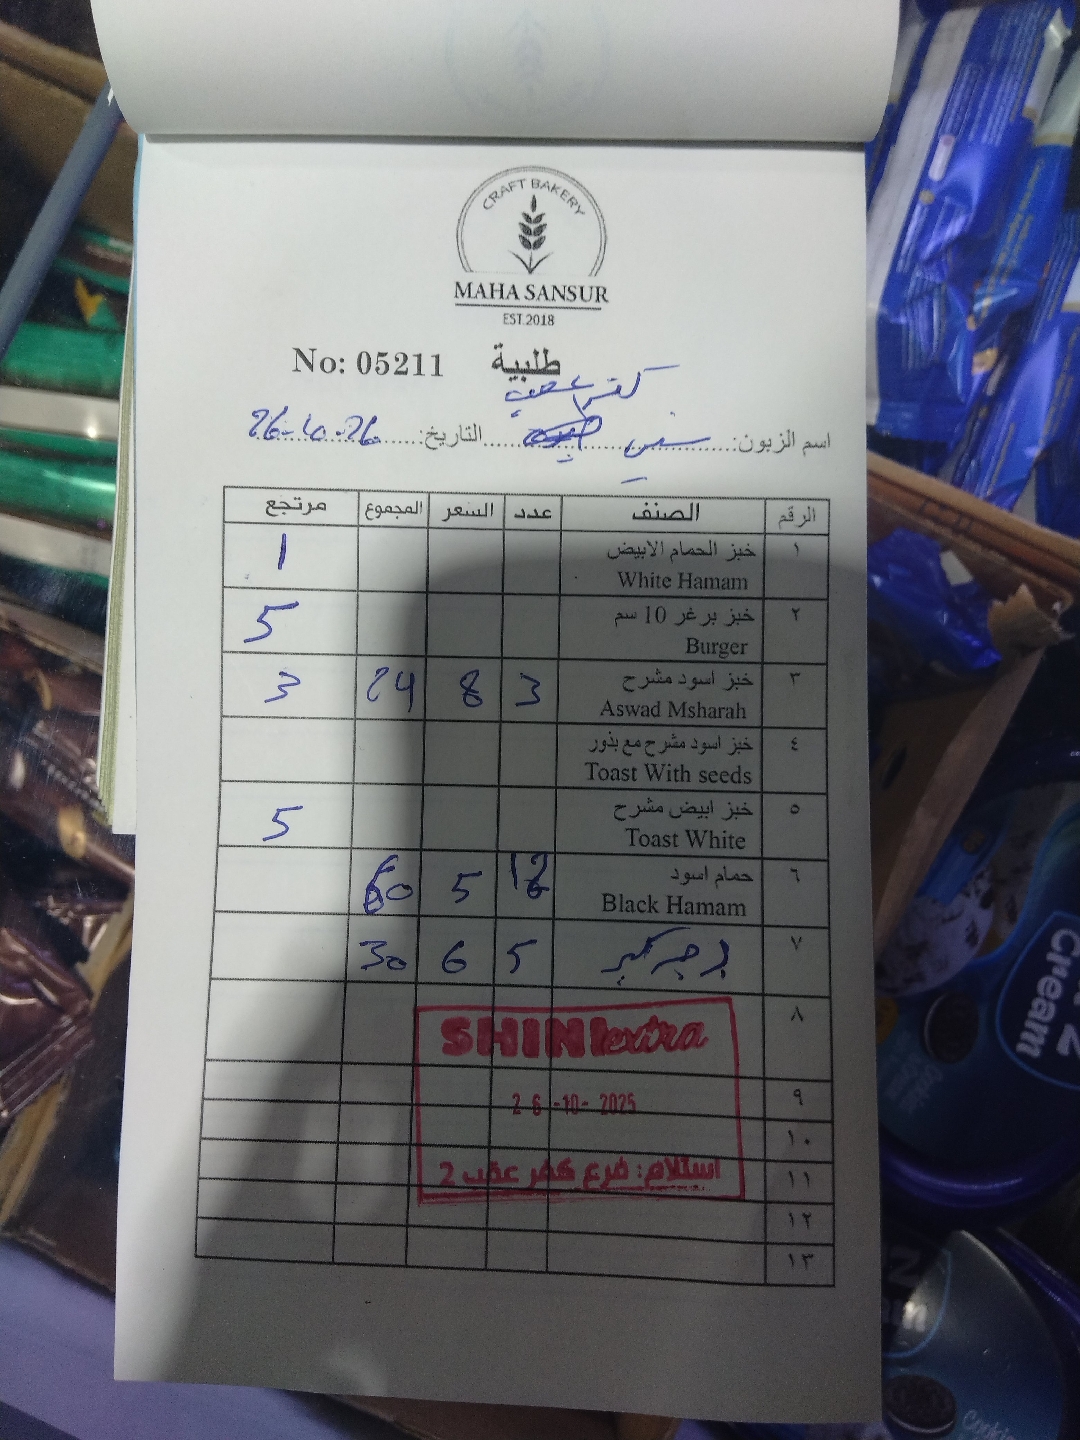 CRAFT BAKERY
MAHA SANSUR
EST.2018
No: 05211 طلبية
كفر عقب
اسم الزبون: شيني التاريخ: 26-10-26
الرقم الصنف عدد السعر المجموع مرتجع
١ خبز الحمام الابيض 1
White Hamam
٢ خبز برغر 10 سم 5
Burger
٣ خبز اسود مشرح 3 8 24 3
Aswad Msharah
٤ خبز اسود مشرح مع بذور
Toast With seeds
٥ خبز ابيض مشرح 5
Toast White
٦ حمام اسود 12 5 60
Black Hamam
٧ 5 6 30
٨
SHINI extra
٩
26-10-2025
١٠
١١
استلام: فرع كفر عقب 2
١٢
١٣
Cream
Z